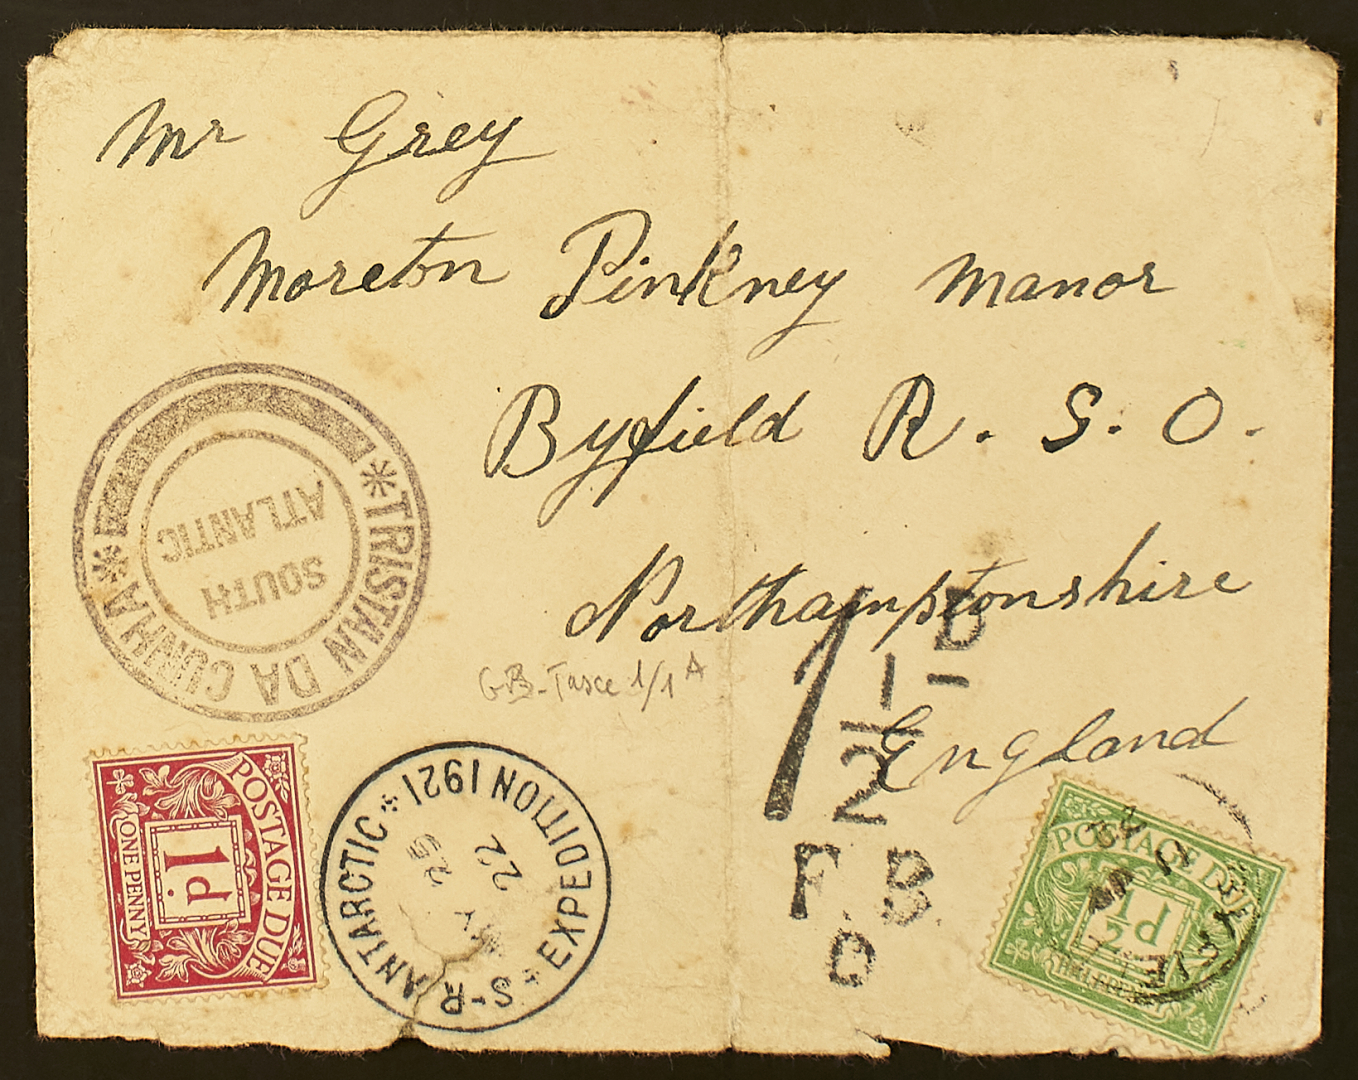 Mr Grey
Moreton Pinkney Manor
Byfield R. S. O.
Northamptonshire
England
TRISTAN DA CUNHA
SOUTH
ATLANTIC
GB-Tasce 1/1A
1 1/2 D
F. B.
D
POSTAGE DUE
1d
ONE PENNY
S-R ANTARCTIC * EXPEDITION 1921
25
22
POSTAGE DUE
½d